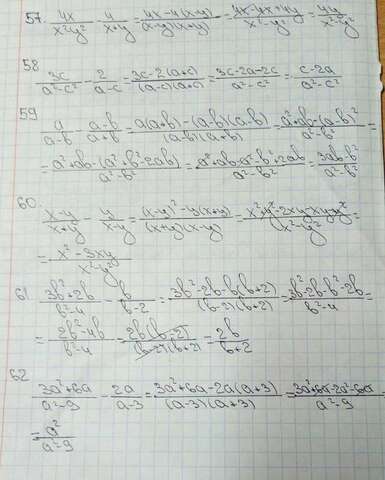 57. 4x/(x²-y²) - 4/(x+y) = (4x-4(x-y))/((x-y)(x+y)) = (4x-4x+4y)/(x²-y²) = 4y/(x²-y²)
58
3c/(a²-c²) - 2/(a-c) = (3c-2(a+c))/((a-c)(a+c)) = (3c-2a-2c)/(a²-c²) = (c-2a)/(a²-c²)
59
a/(a-b) - (a-b)/(a+b) = (a(a+b)-(a-b)(a-b))/((a-b)(a+b)) = (a²+ab-(a-b)²)/(a²-b²) =
= (a²+ab-(a²+b²-2ab))/(a²-b²) = (a²+ab-a²-b²+2ab)/(a²-b²) = (3ab-b²)/(a²-b²)
60.
(x-y)/(x+y) - y/(x-y) = ((x-y)²-y(x+y))/((x+y)(x-y)) = (x²+y²-2xy-xy-y²)/(x²-y²) =
= (x²-3xy)/(x²-y²)
61
(3b²+2b)/(b²-4) - b/(b-2) = (3b²+2b-b(b+2))/((b-2)(b+2)) = (3b²-2b-b²-2b)/(b²-4) =
= (2b²-4b)/(b²-4) = (2b(b-2))/((b-2)(b+2)) = 2b/(b+2)
62
(3a²+6a)/(a²-9) - 2a/(a-3) = (3a²+6a-2a(a+3))/((a-3)(a+3)) = (3a²+6a-2a²-6a)/(a²-9) =
= a²/(a²-9)